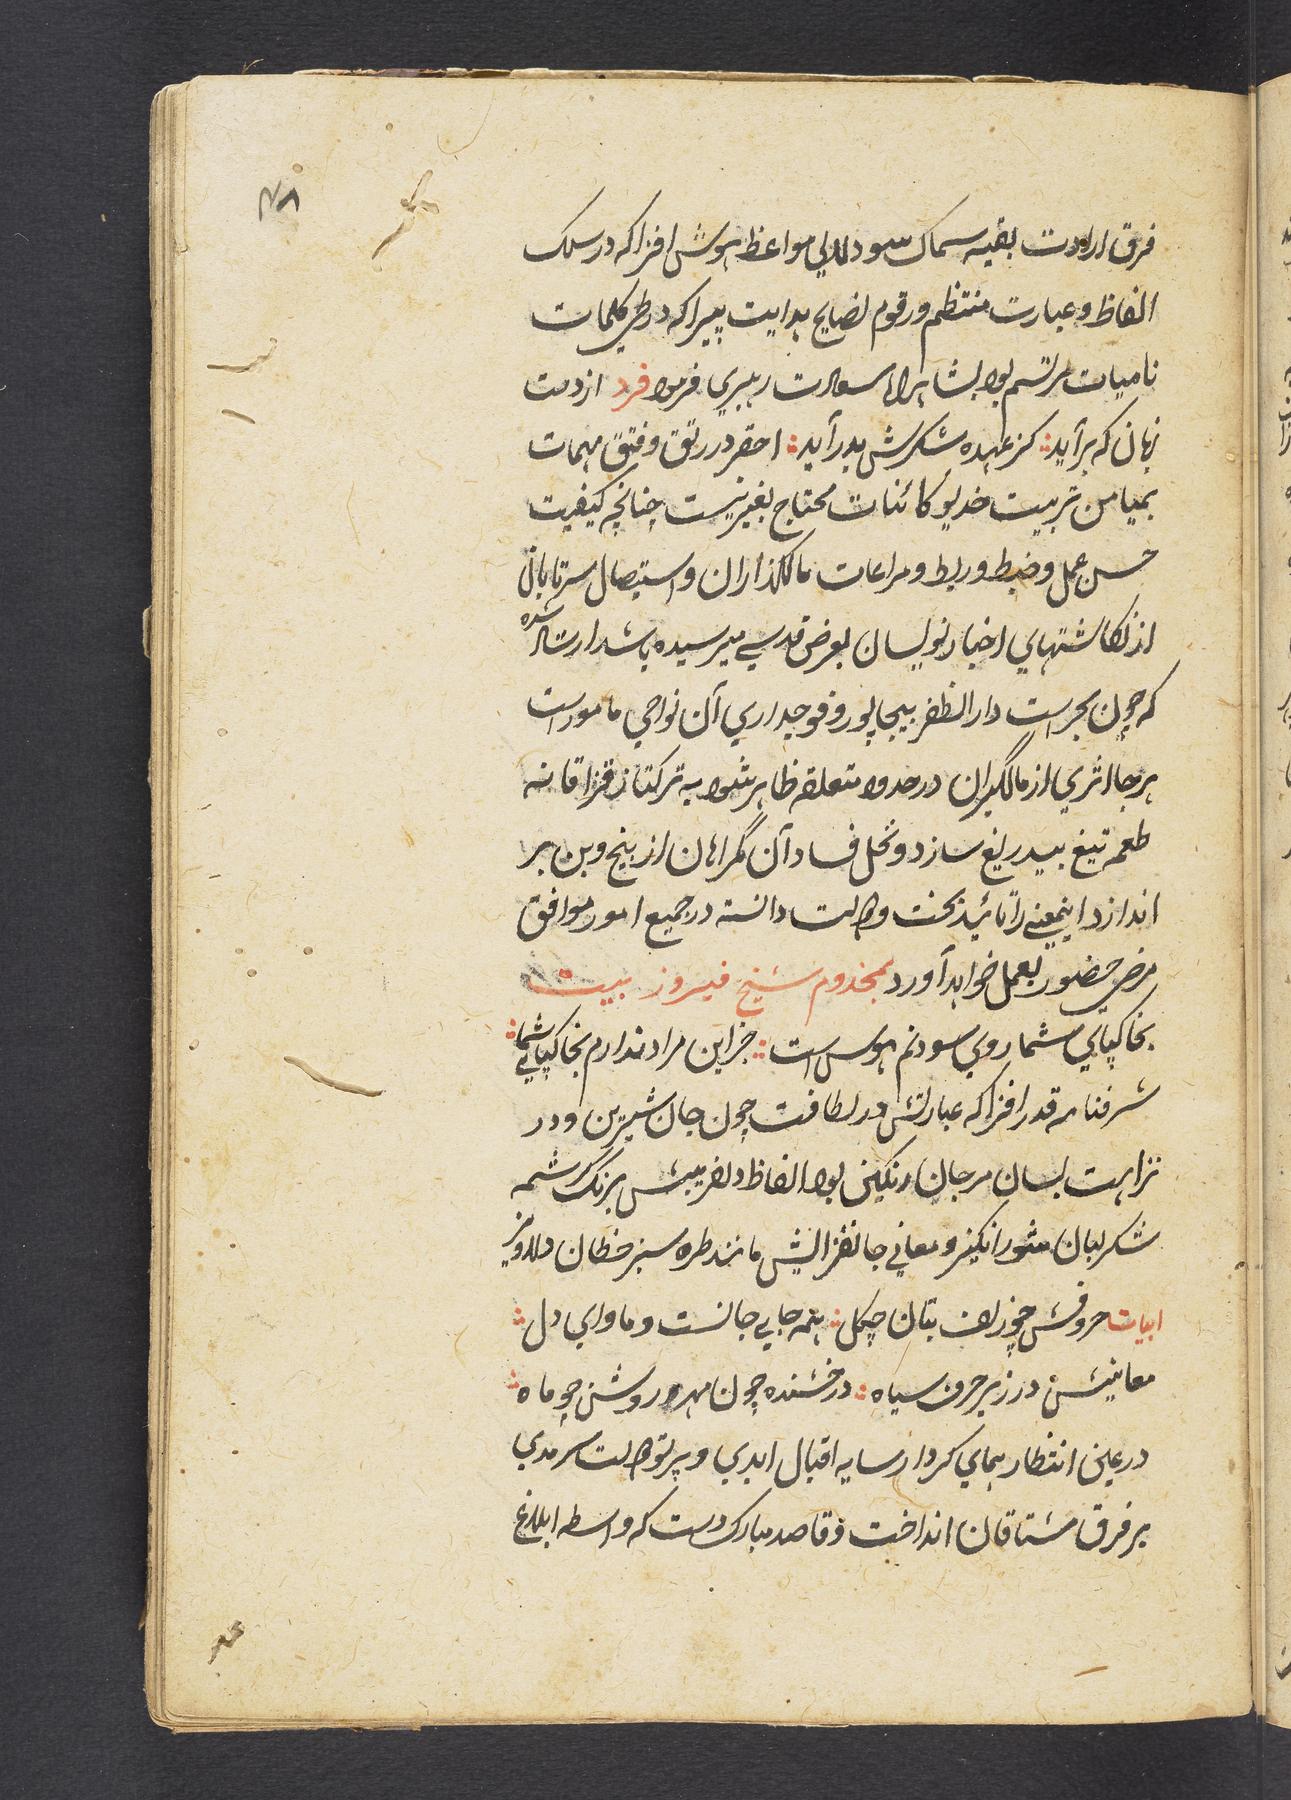 ۷۸
فرق ارادت بقیه سماک سود للالی مواعظ هوش افزا که در سلک
الفاظ و عبارت منتظم و رقوم نصایح هدایت پیرا که در طی کلمات
نامیات مرتسم بود بشاهراه سعادت رهبری فرمود فرد از دست
زبان که برآید کز عهده شکرش بدرآید احقر در رتق و فتق مهمات
بمیامن تربیت خدیو کائنات محتاج بغیر نیست چنانچه کیفیت
حسن عمل و ضبط و ربط و مراعات مالگذاران و استیصال سرتابان
از نگاشتهای اخبار نویسان بعرض قدسی میرسیده باشد ارشاد شده
که چون بحراست دار الظفر بیجاپور و فوجداری آن نواحی مامور است
هر جا اثری از مالگیران در حدود متعلقه ظاهر شود به ترکتاز قزاقانه
طعمه تیغ بیدریغ سازد و نخل فساد آن گمراهان از بیخ و بن بر
اندازد اینمعنی را تائید بخت و دولت دانسته در جمیع امور موافق
مرضی حضور بعمل خواهد آورد بمخدوم شیخ فیروز بیت
بخاکپای شما روی سودنم هوس است جز این مراد ندارم بخاکپای شما
شرفنامه قدر افزا که عبارتش در لطافت چون جان شیرین و در
نزاهت بسان مرجان رنگین بود الفاظ دلفریبش برنگ کرشمه
شکرلبان شورانگیز و معانی جانفزایش مانند طره سبز خطان دلاویز
ابیات حروفش چو زلف بتان چگل همه جایی جانست و ماوای دل
معانیش در زیر حرف سیاه درخشنده چون مهر و روشن چو ماه
در عین انتظار همای کردار سایه اقبال ابدی و پرتو دولت سرمدی
بر فرق مشتاقان انداخت و قاصد مبارک دست که واسطه ابلاغ